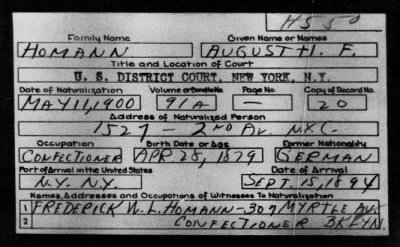 H550
Family Name Given Name or Names
HOMANN AUGUST H. F.
Title and Location of Court
U. S. DISTRICT COURT, NEW YORK, N.Y.
Date of Naturalization Volume or Bundle No. Page No. Copy of Record No.
MAY 11, 1900 91A — 20
Address of Naturalized Person
1527 - 2ND AV. N.Y.C.
Occupation Birth Date or Age Former Nationality
CONFECTIONER APR. 25, 1879 GERMAN
Port of Arrival in the United States Date of Arrival
N.Y. N.Y. SEPT. 15, 1894
Names, Addresses and Occupations of Witnesses To Naturalization
1 FREDERICK W. L. HOMANN - 307 MYRTLE AV.
2 CONFECTIONER BKLYN.